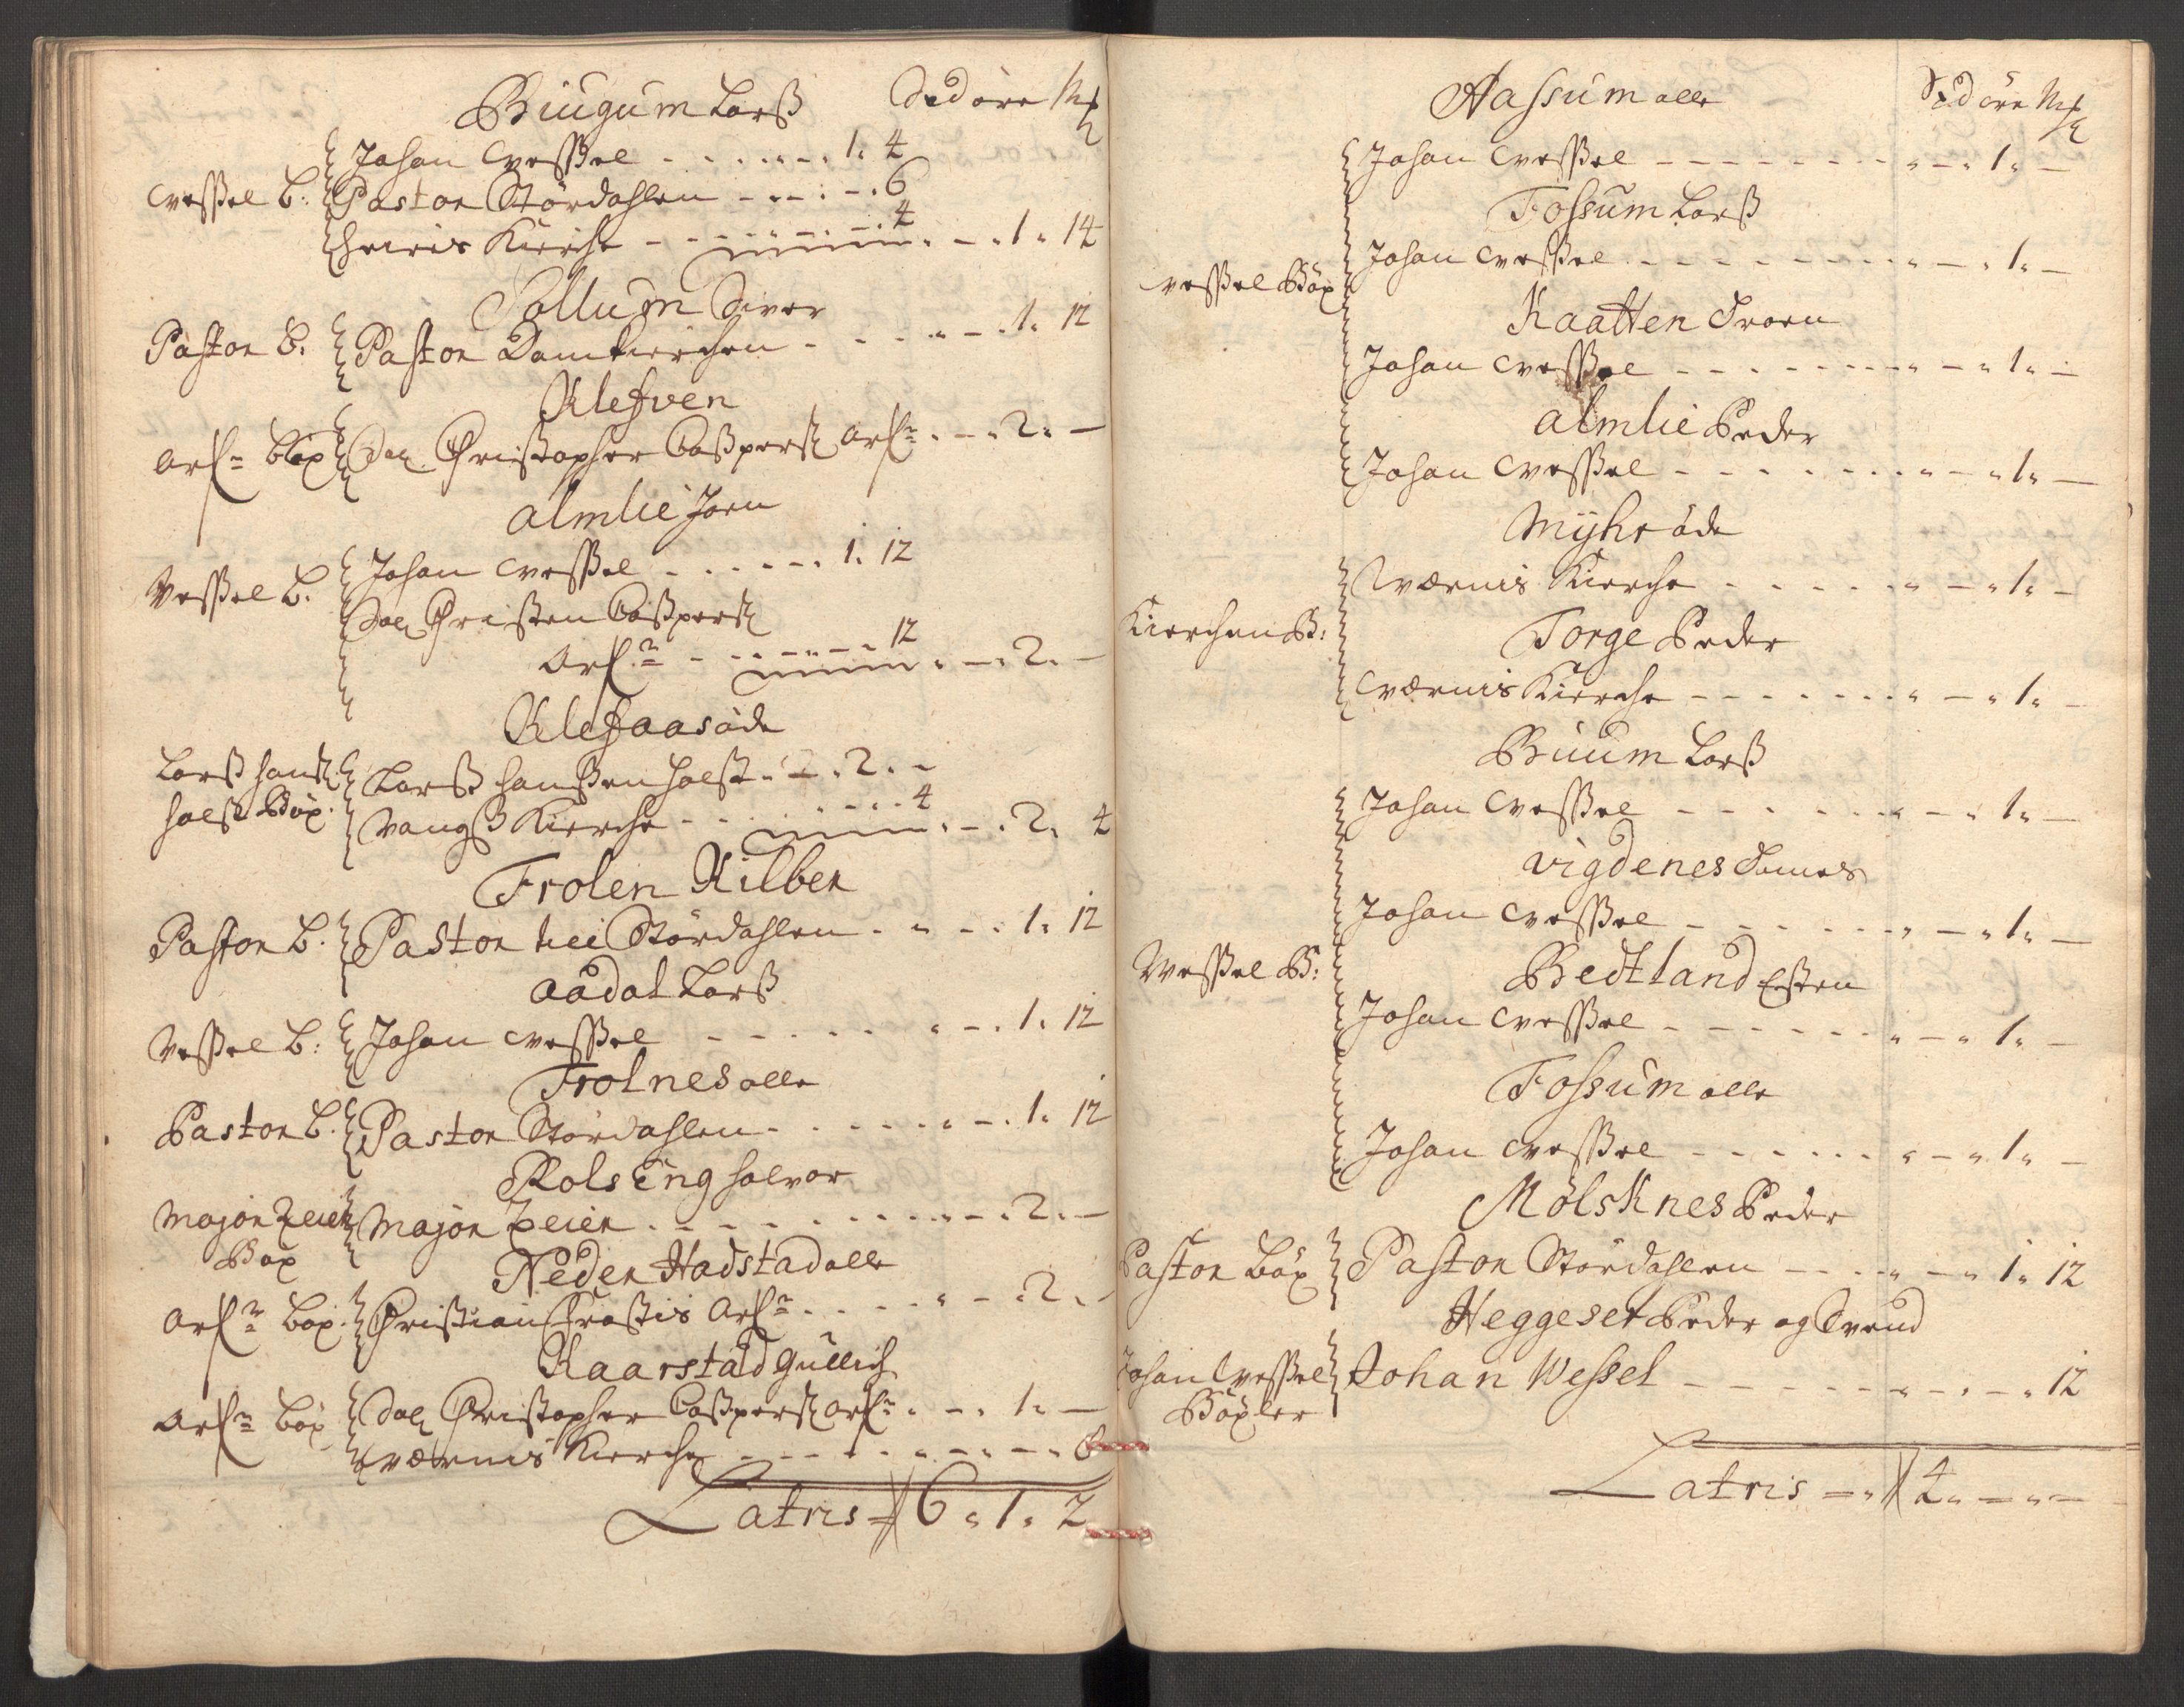 Biugum Larß
Johan Wessel - - - - 1. 4
Wessel B: Pastor Stördahlen - - - . 6
Kirche - - - 4 . - . 1 . 14
Sollum Siver
Pastor B. Pastor Domkierchen - - - . 1. 12
Klefven
Arf: Böx Sal Christopher Caspers Arf: . - . 2. -
Almlie Joen
Wessel B. Johan Wessel - - - - 1. 12
Sal Christen Caspers
Arf: - - - - 12 . - . 2. -
Klefaas öde
Larß Hans Larß Hanssen Holst . - . 2. -
Holst Böx. Vangs Kierche - - - 4 . - . 2. 4
Frolen Kilber
Pastor B. Pastor till Stördahlen . - - . 1. 12
Aadal Larß
Wessel B: Johan Wessel - - - - . 1. 12
Frolnes Olle
Pastor B. Pastor Stördahlen - - - - . 1. 12
Rolsing Halvor
Major Zeier Major Zeier - - - - . 2. -
Böx
Neder Hadstad Olle
Arf: Böx. Christian Arf: - - - - . 2. -
Kaarstad Gullich
Arf: Böx Sal Christopher Caspers Arf: . - . 1. -
Værnis Kierche - - - - - 6
Latris 6 . 1 . 2
Hassum Olle
Johan Wessel - - - - - . 1. -
Fossum Larß
Johan Wessel - - - - - . 1. -
Wessel Böx
Kaatten
Johan Wessel - - - - - . 1. -
Almlie Peder
Johan Wessel - - - - - . 1. -
Myhr öde
Værnis Kierche - - - - . 1. -
Kierchen B:
Torge Peder
Værnis Kierche - - - - . 1. -
Buum Larß
Johan Wessel - - - - - . 1. -
Vigdenes
Johan Wessel - - - - - . 1. -
Wessel B:
Bedtland Esten
Johan Wessel - - - - - . 1. -
Fossum Olle
Johan Wessel - - - - - . 1. -
Mölsknes Peder
Pastor Böx Pastor Stördahlen - - - . 1. 12
Heggeset Peder og
Johan Wessel Johan Wessel - - - - - . 12
Böxler
Latris - . 4. - . -